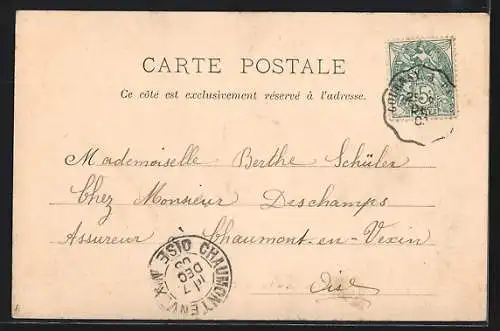 CARTE POSTALE
Ce côté est exclusivement réservé à l'adresse.
Mademoiselle Berthe Schüler
Chez Monsieur Deschamps
Assureur Chaumont-en-Vexin
Oise
CHAUMONT EN VEXIN OISE
7
DEC
03
5